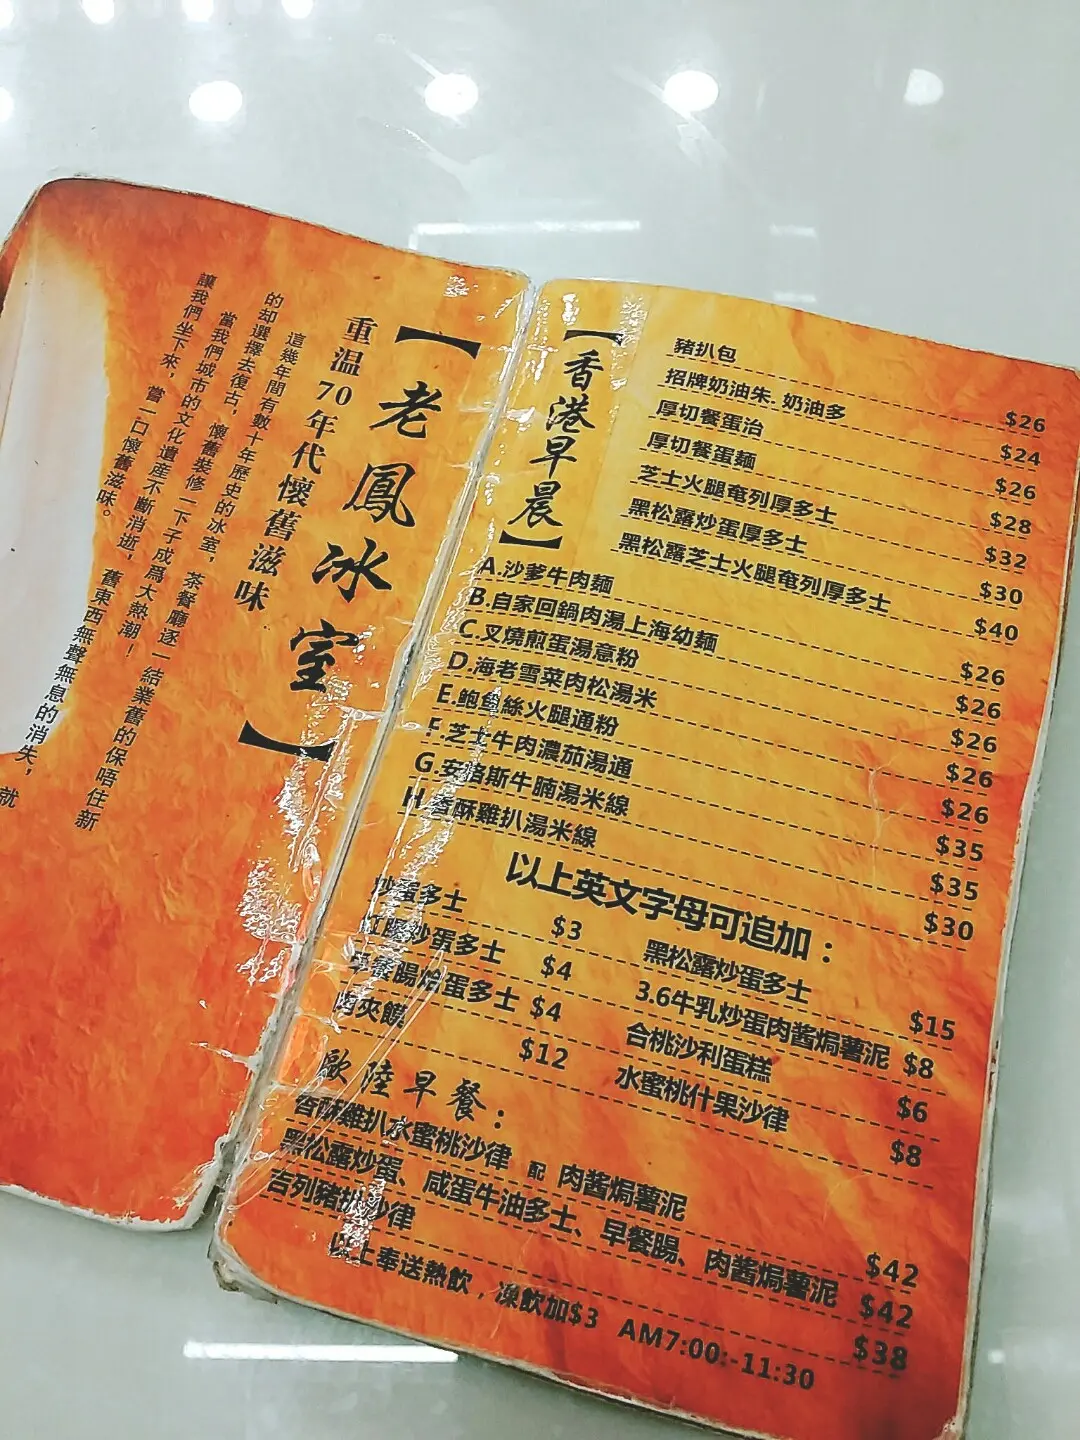 【老鳳冰室】
重温70年代懷舊滋味
這幾年間有數十年歷史的冰室，茶餐廳逐一結業舊的保唔住新
的却選擇去復古，懷舊裝修一下子成爲大熱潮！
當我們城市的文化遺産不斷消逝，舊東西無聲無息的消失，就
讓我們坐下來，嘗一口懷舊滋味。
【香港早晨】
豬扒包 $26
招牌奶油朱. 奶油多 $24
厚切餐蛋治 $26
厚切餐蛋麵 $28
芝士火腿奄列厚多士 $32
黑松露炒蛋厚多士 $30
黑松露芝士火腿奄列厚多士 $40
A.沙爹牛肉麵 $26
B.自家回鍋肉湯上海幼麵 $26
C.叉燒煎蛋湯意粉 $26
D.海老雪菜肉松湯米 $26
E.鮑魚絲火腿通粉 $26
F.芝士牛肉濃茄湯通 $35
G.安格斯牛腩湯米線 $35
H.香酥雞扒湯米線 $30
以上英文字母可追加：
炒蛋多士 $3
紅腸炒蛋多士 $4
早餐腸炒蛋多士 $4
夾饃 $12
黑松露炒蛋多士 $15
3.6牛乳炒蛋肉酱焗薯泥 $8
合桃沙利蛋糕 $6
水蜜桃什果沙律 $8
歐陸早餐：
香酥雞扒水蜜桃沙律 配 肉酱焗薯泥 $42
黑松露炒蛋、咸蛋牛油多士、早餐腸、肉酱焗薯泥 $42
吉列豬扒沙律 $38
以上奉送熱飲，凍飲加$3 AM7:00:-11:30